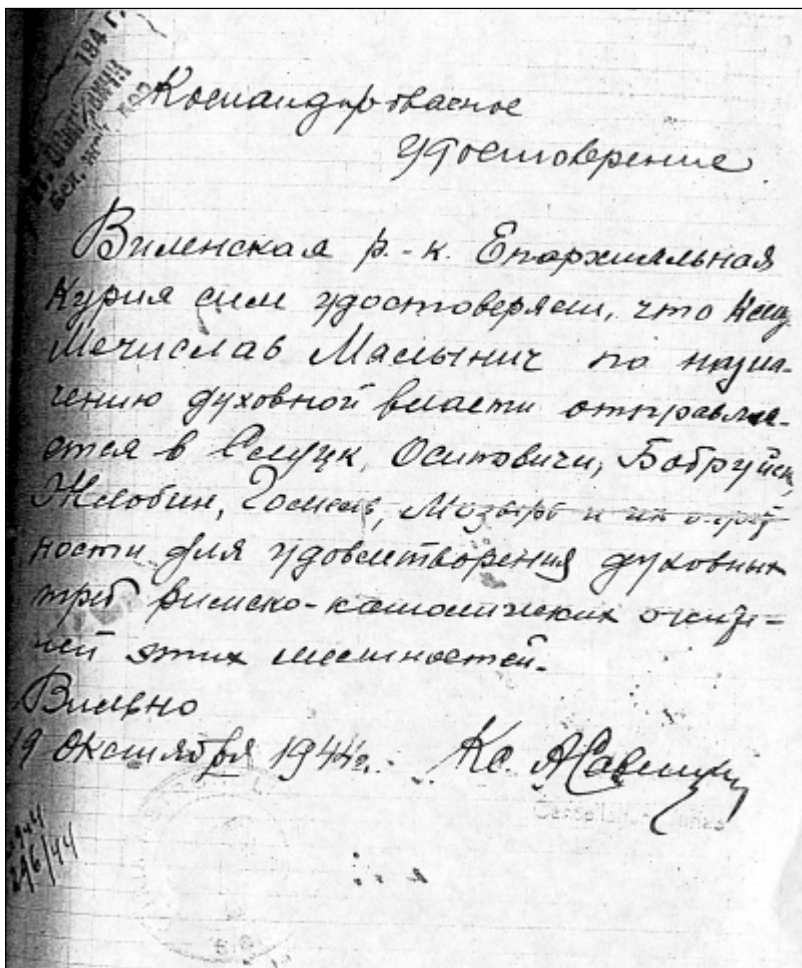 194 г.
Командировочное
удостоверение
Виленская р.-к. Епархиальная
Курия сим удостоверяет, что Ксёндз
Мечислав Малынич по назна-
чению духовной власти отправля-
ется в Слуцк, Осиповичи, Бобруйск,
Жлобин, Гомель, Мозырь и их окрест
ности для удовлетворения духовных
треб римско-католических жите-
лей этих местностей.
Вильно
19 октября 1944 г. Кс. А Савицки
1944
/44